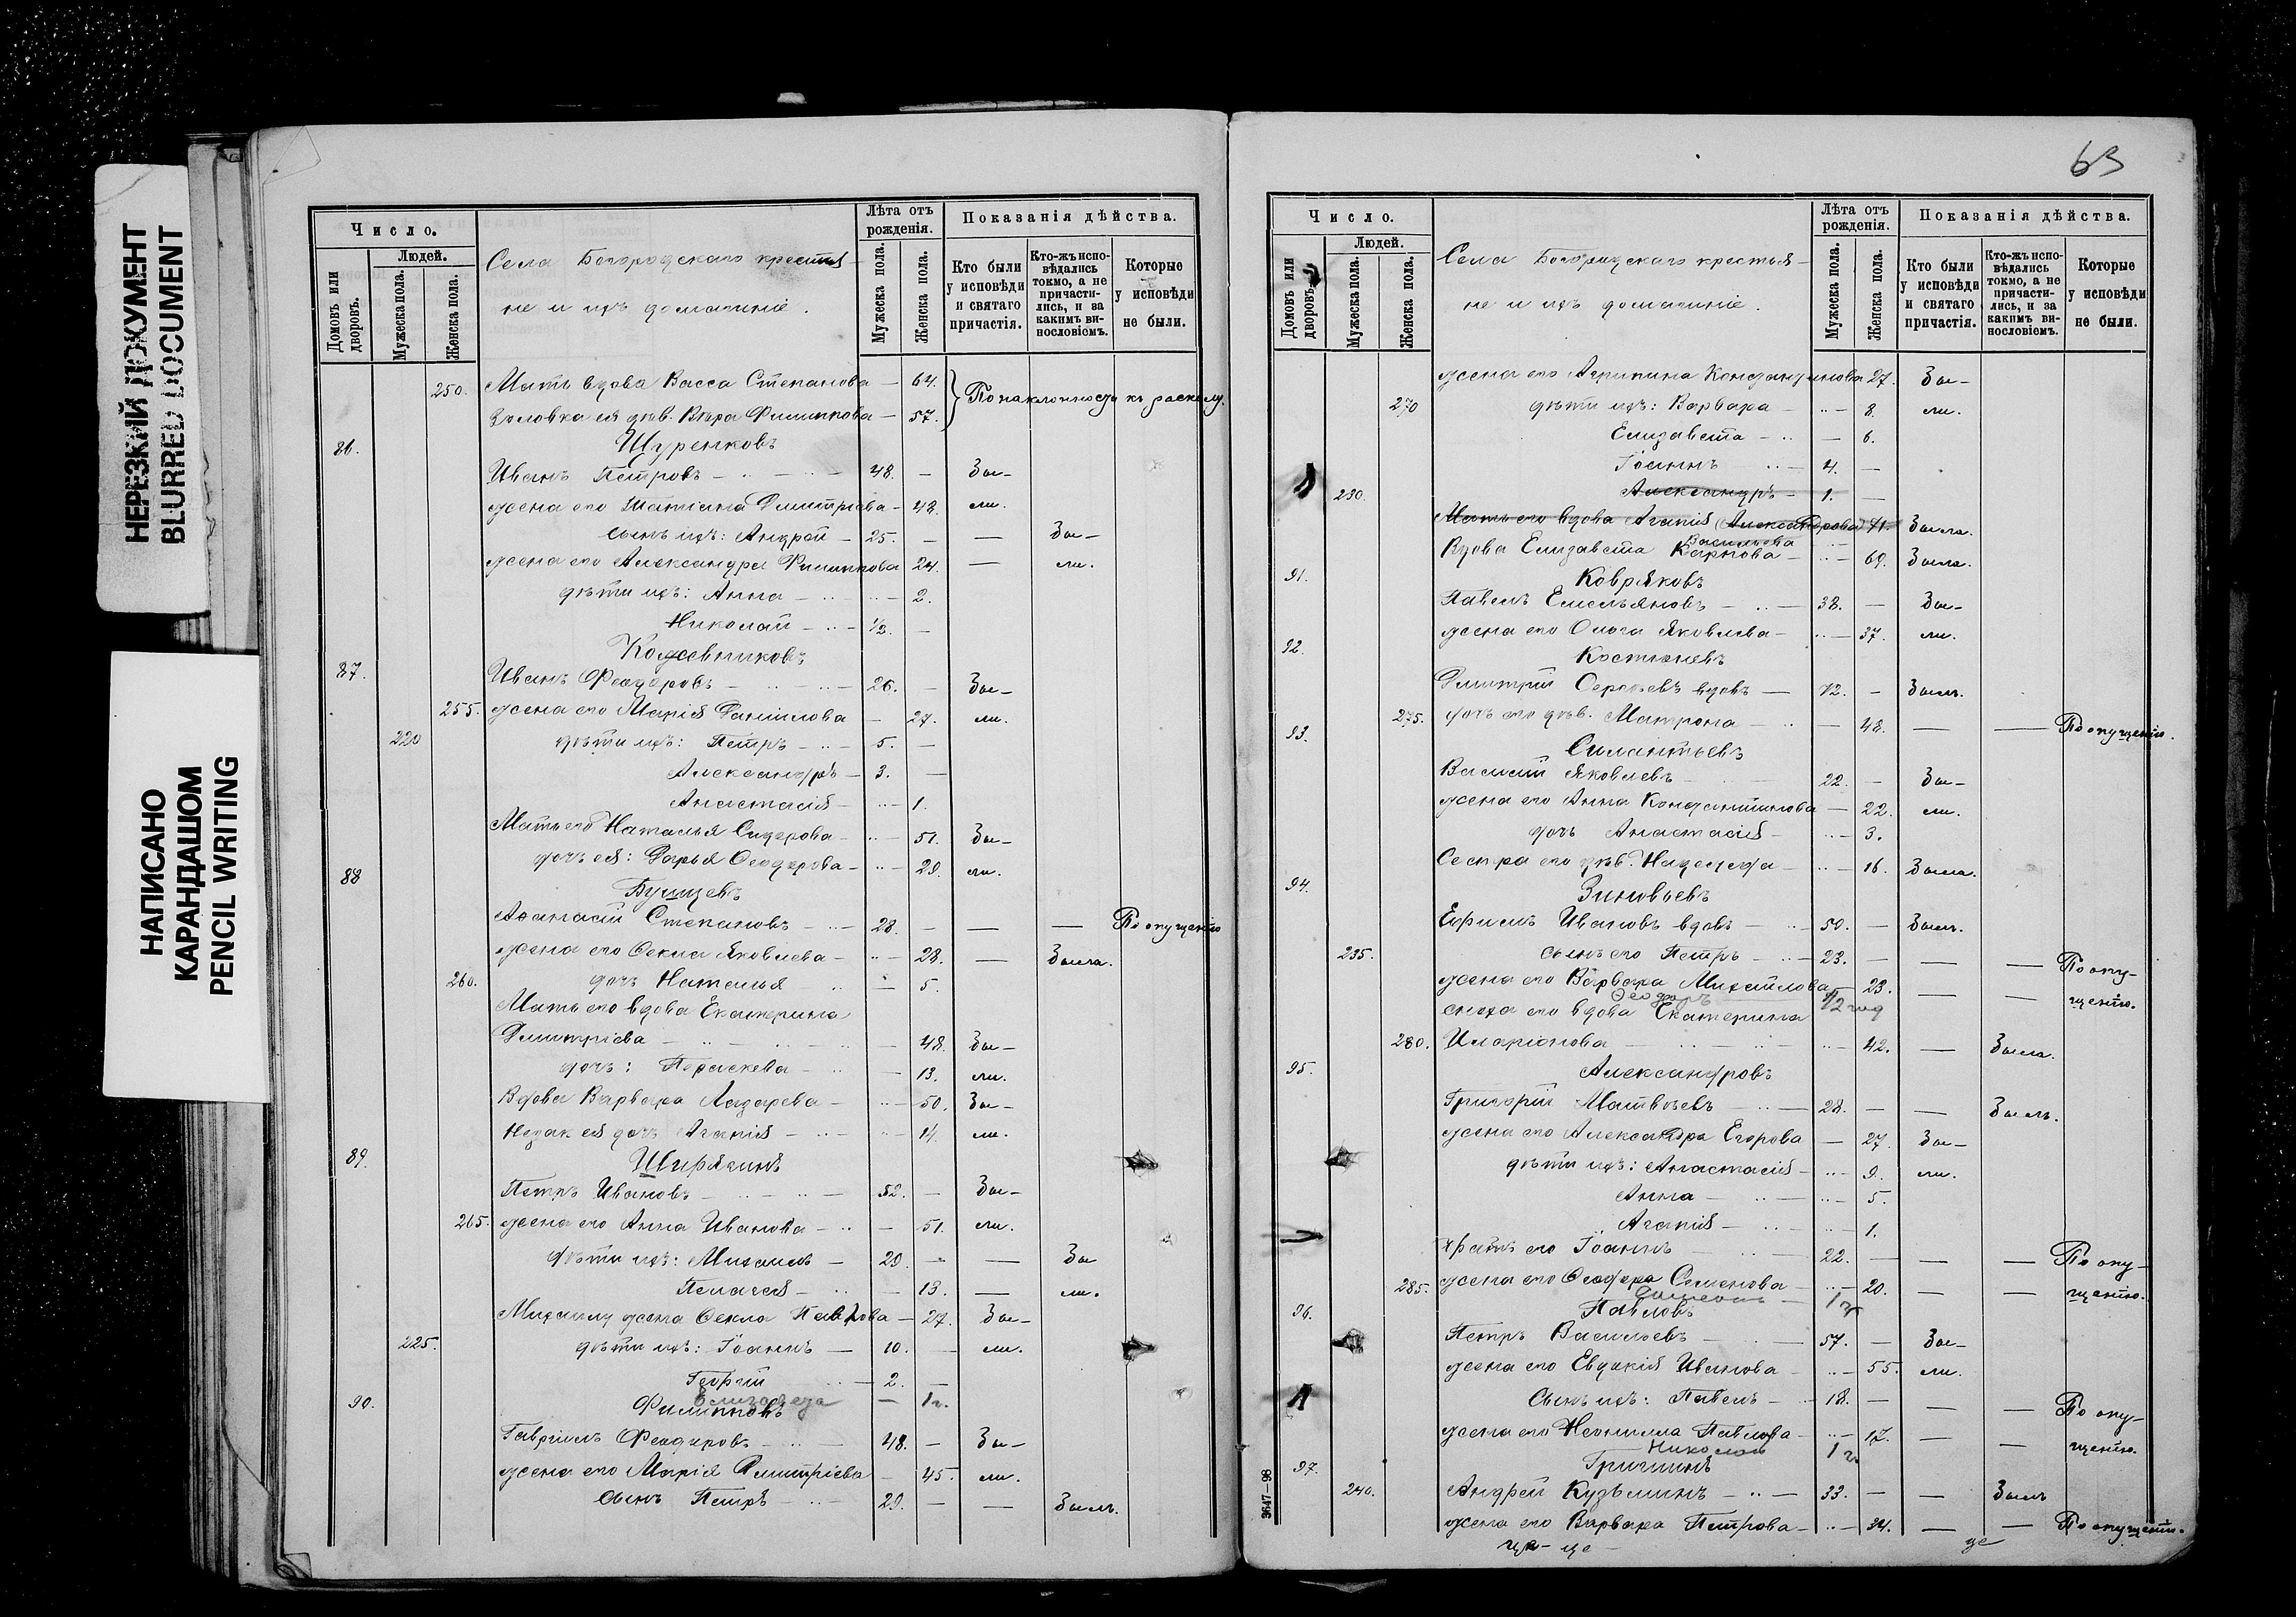 НЕРЕЗКИЙ ДОКУМЕНТ
BLURRED DOCUMENT
НАПИСАНО
КАРАНДАШОМ
PENCIL WRITING
Число.
Людей.
Домовъ или дворовъ.
Мужеска пола.
Женска пола.
Села Богородскаго крестья-
не и ихъ домашніе.
Лѣта отъ рожденія.
Мужеска пола.
Женска пола.
Показанія дѣйства.
Кто были у исповѣди и святаго причастія.
Кто-жъ испо-вѣдались токмо, а не причасти-лись, и за какимъ ви-нословіемъ.
Которые у исповѣди не были.
250. Мать вдова Васса Степанова — 64. По наклонности къ расколу.
Золовка ея дѣв. Вѣра Филиппова — 57.
86. Щуренковъ
Иванъ Петровъ — 48. — Бы-
жена его Татіана Димитріева — 48. ли.
сынъ ихъ: Андрей — 25. — — Бы-
жена его Александра Филиппова 24. — ли.
дѣти ихъ: Анна — 2.
Николай — 1/2. —
87. Кожевниковъ
Иванъ Феодоровъ — 26. — Бы-
255. жена его Марія Даніилова — 27. ли.
220 дѣти ихъ: Петръ — 5. —
Александръ — 3. —
Анастасія — 1.
Мать его Наталья Сидорова — 51. Бы-
дочь ея: Дарья Ѳеодорова — 29. ли.
88 Бушуевъ
Аѳанасій Степановъ — 28. — — — По опущенію
жена его Ѳекла Яковлева — 28. — Была.
260. дочь Наталья — 5.
Мать его вдова Екатерина
Димитріева — 48. Бы-
дочь: Параскева — 13. ли.
Вдова Варвара Лазарева — 50. Бы-
Незак. ея дочь Агапія — 14. ли.
89. Ширягинъ
Петръ Ивановъ — 52. — Бы-
265. жена его Анна Иванова — 51. ли.
дѣти ихъ: Михаилъ — 29. — — Бы
Пелагея — 13. — ли.
Михаилу жена Ѳекла Павлова — 27. Бы-
225. дѣти ихъ: Іоаннъ — 10. — ли.
Георгій — 2. —
Елизавета — 1 г.
90. Филипповъ
Гавріилъ Феодоровъ — 48. — Бы-
жена его Марія Димитріева — 45. ли.
сынъ Петръ — 29. — — Былъ.
63
Число.
Людей.
Домовъ или дворовъ.
Мужеска пола.
Женска пола.
Села Богородскаго крестья-
не и ихъ домашніе.
Лѣта отъ рожденія.
Мужеска пола.
Женска пола.
Показанія дѣйства.
Кто были у исповѣди и святаго причастія.
Кто-жъ испо-вѣдались токмо, а не причасти-лись, и за какимъ ви-нословіемъ.
Которые у исповѣди не были.
жена его Агрипина Константинова 27. Бы-
270 дѣти ихъ: Варвара — 8. ли.
Елизавета — 6.
Іоаннъ — 4. —
230. Александръ — 1. —
Мать его вдова Агапія (Александрова) 71. Была.
Васильева
Вдова Елизавета Карпова — 69. Была.
91. Ковряковъ
Павелъ Емельяновъ — 38. — Бы-
жена его Ольга Яковлева — 37. ли.
92. Костюневъ
Димитрій Сергѣевъ вдовъ — 72. — Былъ.
275. дочь его дѣв. Матрона — 48. — — По опущенію.
93. Силантьевъ
Василій Яковлевъ — 22. — Бы-
жена его Анна Константинова — 22. ли.
дочь Анастасія — 3.
Сестра его дѣв. Надежда — 16. Была.
94. Зиновьевъ
Ефимъ Ивановъ вдовъ — 50. — Былъ.
235. сынъ его Петръ — 23. — — — По опу-
жена его Варвара Михайлова — 23. — — щенію.
Ѳеодоръ 1/2 год
сноха его вдова Екатерина
280. Иларіонова — 42. — Была.
95. Александровъ
Григорій Матвѣевъ — 28. — — Былъ.
жена его Александра Егорова — 27. Бы-
дѣти ихъ: Анастасія — 9. ли.
Анна — 5.
Агапія — 1.
братъ его Іоаннъ — 22. — — — По опу-
285. жена его Ѳеодора Семенова — 20. — — щенію.
1 г
96. Павловъ
Петръ Васильевъ — 57. — Бы-
жена его Евдокія Иванова — 55. ли.
Сынъ ихъ: Павелъ — 18. — — — По опу-
жена его Неонилла Павлова — 17. — — щенію.
Николай 1 г.
97. Гришинъ
240. Андрей Кузьминъ — 33. — — Былъ
жена его Варвара Петрова — 34. — — По опущенію.
3647—98